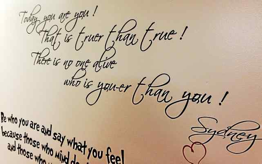 Today, you are you !
That is truer than true !
There is no one alive
who is you-er than you !
Sydney
Be who you are and say what you feel
because those who mind don't
and those who